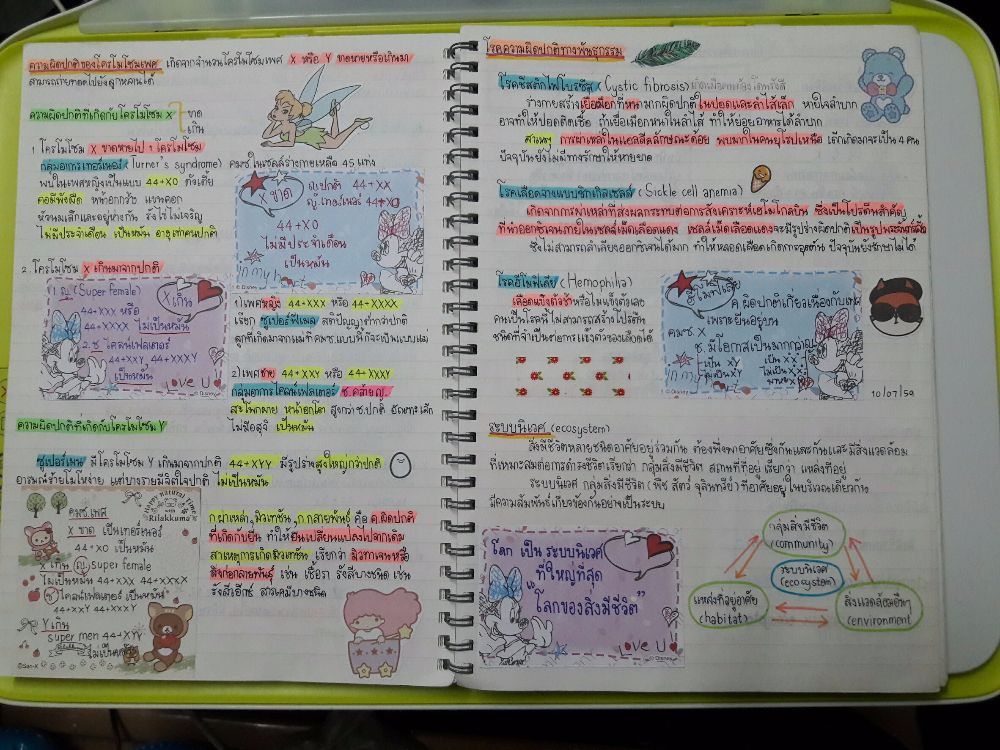 ความผิดปกติของโครโมโซมเพศ เกิดจากจำนวนโครโมโซมเพศ X หรือ Y ขาดหายหรือเกินมา
สามารถถ่ายทอดไปยังลูกหลานได้
ความผิดปกติที่เกิดกับโครโมโซม X
ขาด
เกิน
1. โครโมโซม X ขาดหายไป 1 โครโมโซม
กลุ่มอาการเทอร์เนอร์ (Turner's syndrome) คมซ.ในเซลล์ร่างกายเหลือ 45 แท่ง
พบในเพศหญิงเป็นแบบ 44+XO ตัวเตี้ย
คอมีพังผืด หน้าอกกว้าง แขนคอก
หัวนมเล็กและอยู่ห่างกัน รังไข่ไม่เจริญ
ไม่มีประจำเดือน เป็นหมัน อายุเท่าคนปกติ
X ขาด
ญ.ปกติ 44+XX
ญ.เทอร์เนอร์ 44+XO
44+XO
ไม่มีประจำเดือน
เป็นหมัน
2. โครโมโซม X เกินมาจากปกติ
1. ญ (Super female)
X เกิน
44+XXX หรือ
44+XXXX ไม่เป็นหมัน
2. ช ไคลน์เฟลเตอร์
44+XXY 44+XXXY
เป็นหมัน
Love U
1) เพศหญิง 44+XXX หรือ 44+XXXX
เรียก ซูเปอร์ฟีเมล สติปัญญาต่ำกว่าปกติ
ลูกที่เกิดมาจากแม่ที่คมซ.แบบนี้ก็จะเป็นแบบแม่
2) เพศชาย 44+XXY หรือ 44+XXXY
กลุ่มอาการไคลน์เฟลเตอร์ ช.คล้ายญ.
สะโพกผาย หน้าอกโต สูงกว่าช.ปกติ อัณฑะเล็ก
ไม่มีอสุจิ เป็นหมัน
ความผิดปกติที่เกิดกับโครโมโซม Y
ซูเปอร์เมน มีโครโมโซม Y เกินมาจากปกติ 44+XYY มีรูปร่างสูงใหญ่กว่าปกติ
อารมณ์ร้ายโมโหง่าย แต่บางรายมีจิตใจปกติ ไม่เป็นหมัน
Happy natural time
Rilakkuma
คมซ.เพศ
X ขาด เป็นเทอร์เนอร์
44+XO เป็นหมัน
X เกิน ญ super female
ไม่เป็นหมัน 44+XXX 44+XXXX
ช ไคลน์เฟลเตอร์ เป็นหมัน
44+XXY 44+XXXY
Y เกิน
super men 44+XYY
ไม่เป็นหมัน
ก.ผ่าเหล่า, มิวเทชัน, ก.กลายพันธุ์ คือ ค.ผิดปกติ
ที่เกิดกับยีน ทำให้ยีนเปลี่ยนแปลงไปจากเดิม
สาเหตุการเกิดมิวเทชัน เรียกว่า มิวทาเจนหรือ
สิ่งก่อกลายพันธุ์ เช่น เชื้อรา รังสีบางชนิด เช่น
รังสีเอ็กซ์ สารเคมีบางชนิด
โรคความผิดปกติทางพันธุกรรม
โรคซิสติกไฟโบรซิส (Cystic fibrosis)
ร่างกายสร้างเยื่อเมือกที่หนามากผิดปกติในปอดและลำไส้เล็ก หายใจลำบาก
อาจทำให้ปอดติดเชื้อ ถ้าเยื่อเมือกหนาในลำไส้ ทำให้ย่อยอาหารได้ลำบาก
สาเหตุ การผ่าเหล่าในแอลลีลลักษณะด้อย พบมากในคนยุโรปเหนือ เด็กเกิดมาจะเป็น 4 คน
ปัจจุบันยังไม่มีทางรักษาให้หายขาด
โรคเลือดจางแบบซิกเกิลเซลล์ (Sickle cell anemia)
เกิดจากการผ่าเหล่าที่ส่งผลกระทบต่อการสังเคราะห์เฮโมโกลบิน ซึ่งเป็นโปรตีนสำคัญ
ที่นำออกซิเจนภายในเซลล์เม็ดเลือดแดง เซลล์เม็ดเลือดแดงจะมีรูปร่างผิดปกติเป็นรูป
ซึ่งไม่สามารถลำเลียงออกซิเจนได้มาก ทำให้หลอดเลือดเกิดการอุดตัน ปัจจุบันยังรักษาไม่ได้
โรคฮีโมฟีเลีย (Hemophilia)
เลือดแข็งตัวช้าหรือไม่แข็งตัวเลย
คนเป็นโรคนี้ไม่สามารถสร้างโปรตีน
ชนิดที่จำเป็นต่อการแข็งตัวของเลือดได้
ฮีโมฟีเลีย
ค.ผิดปกติเกี่ยวเนื่องกับเพศ
เพราะยีนอยู่บน
คมซ. X
ช. มีโอกาสเป็นมากกว่าญ.
10/07/59
ระบบนิเวศ (ecosystem)
สิ่งมีชีวิตหลายชนิดอาศัยอยู่ร่วมกัน ต้องพึ่งพาอาศัยซึ่งกันและกันและมีสิ่งแวดล้อม
ที่เหมาะสมต่อการดำรงชีวิตเรียกว่า กลุ่มสิ่งมีชีวิต สถานที่ที่อยู่ เรียกว่า แหล่งที่อยู่
ระบบนิเวศ กลุ่มสิ่งมีชีวิต (พืช สัตว์ จุลินทรีย์) ที่อาศัยอยู่ในบริเวณเดียวกัน
มีความสัมพันธ์เกี่ยวข้องกันอย่างเป็นระบบ
โลก เป็น ระบบนิเวศ
ที่ใหญ่ที่สุด
"โลกของสิ่งมีชีวิต"
Love U
กลุ่มสิ่งมีชีวิต
(community)
ระบบนิเวศ
(ecosystem)
แหล่งที่อยู่อาศัย
(habitat)
สิ่งแวดล้อมอื่นๆ
(environment